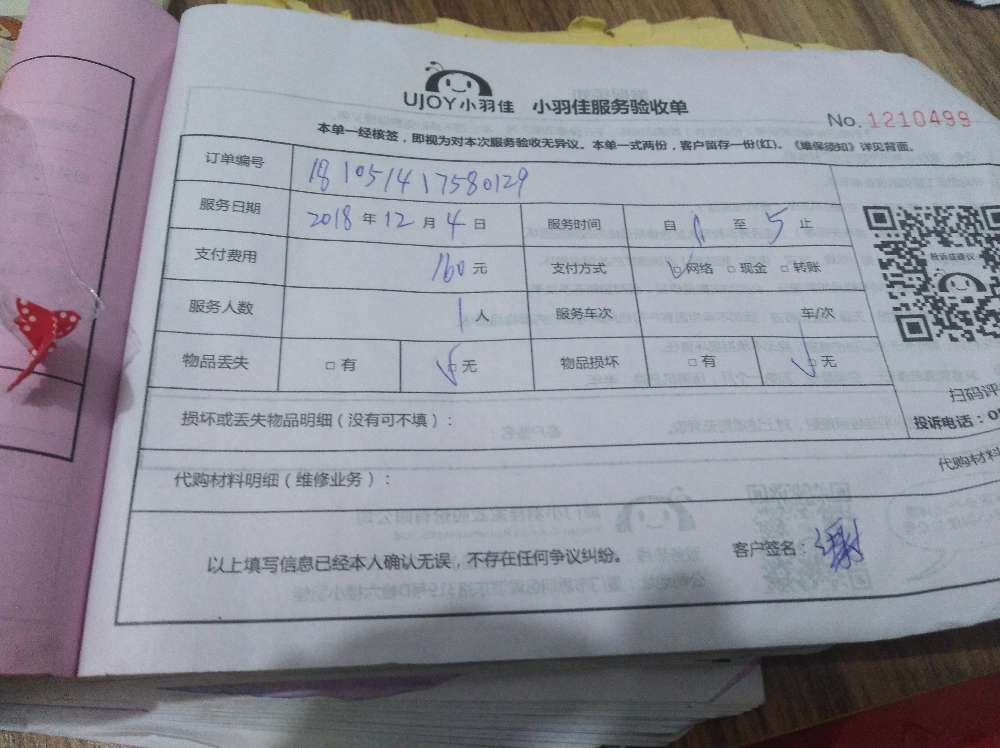 UJOY小羽佳 小羽佳服务验收单
No.1210499
本单一经核签，即视为对本次服务验收无异议。本单一式两份，客户留存一份(红)。《维保须知》详见背面。
订单编号 181051417580129
服务日期 2018年12月4日 服务时间 自1至5止
支付费用 160元 支付方式 □网络 □现金 □转账
服务人数 1人 服务车次 车/次
投诉或建议
物品丢失 □有 □无 物品损坏 □有 □无
扫码评
损坏或丢失物品明细（没有可不填）：
投诉电话：0
代购材料明细（维修业务）：
代购材料
以上填写信息已经本人确认无误，不存在任何争议纠纷。 客户签名：谢